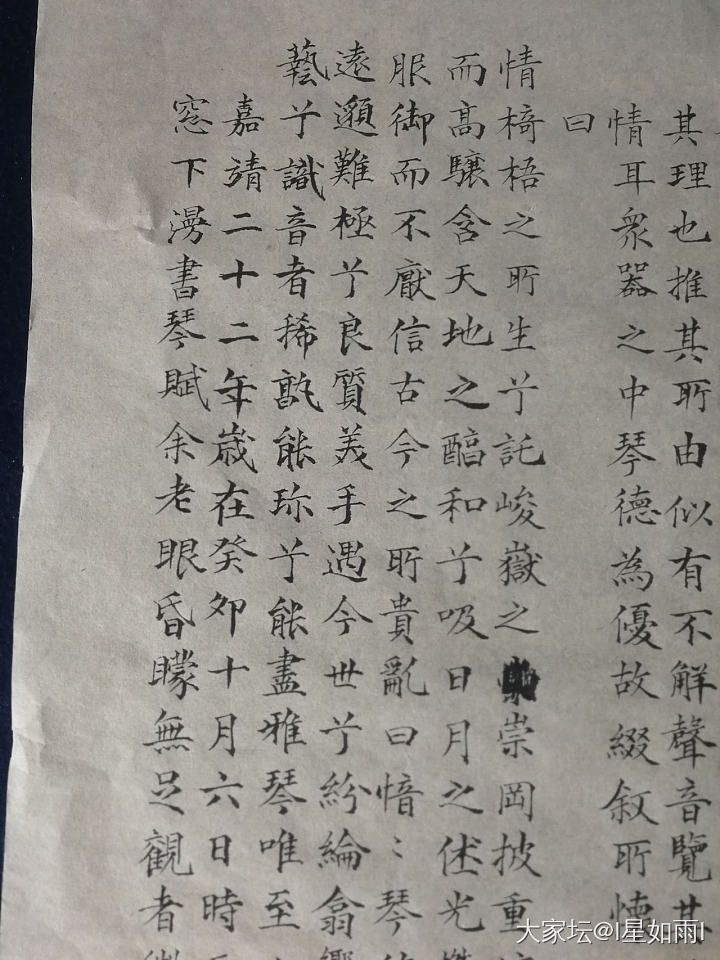 其理也推其所由似有不解聲音覽其
情耳衆器之中琴德為優故綴叙所懐
曰
情椅梧之所生兮託峻嶽之崇岡披重
而高驤含天地之醕和兮吸日月之休光
服御而不厭信古今之所貴亂曰愔〻琴
遠邈難極兮良質美手遇今世兮紛綸翕響
藝兮識音者稀孰能珎兮能盡雅琴唯至
嘉靖二十二年歳在癸卯十月六日時
窓下漫書琴賦余老眼昏矇無足觀者
大家坛@I星如雨I